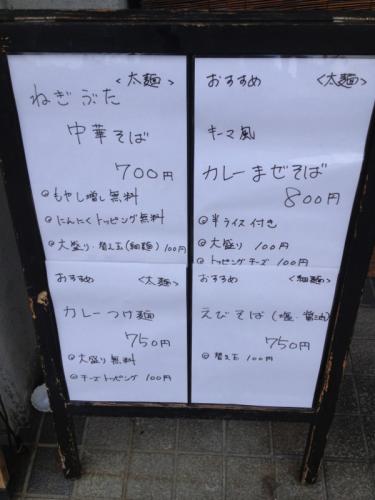 ＜太麺＞
ねぎぶた
中華そば
700円
◎もやし増し無料
◎にんにくトッピング無料
◎大盛り・替え玉(細麺)100円
おすすめ ＜太麺＞
キーマ風
カレーまぜそば
800円
◎半ライス付き
◎大盛り 100円
◎トッピングチーズ 100円
おすすめ ＜太麺＞
カレーつけ麺
750円
◎大盛り無料
◎チーズトッピング 100円
おすすめ ＜細麺＞
えびそば(塩・醤油)
750円
◎替え玉 100円